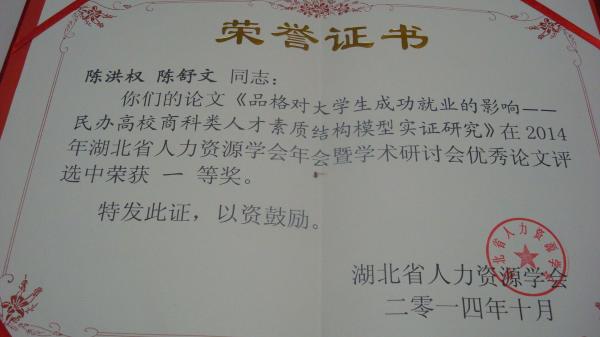 荣誉证书
陈洪权 陈舒文 同志：
你们的论文《品格对大学生成功就业的影响——
民办高校商科类人才素质结构模型实证研究》在2014
年湖北省人力资源学会年会暨学术研讨会优秀论文评
选中荣获 一 等奖。
特发此证，以资鼓励。
湖北省人力资源学会
湖北省人力资源学会
二零一四年十月